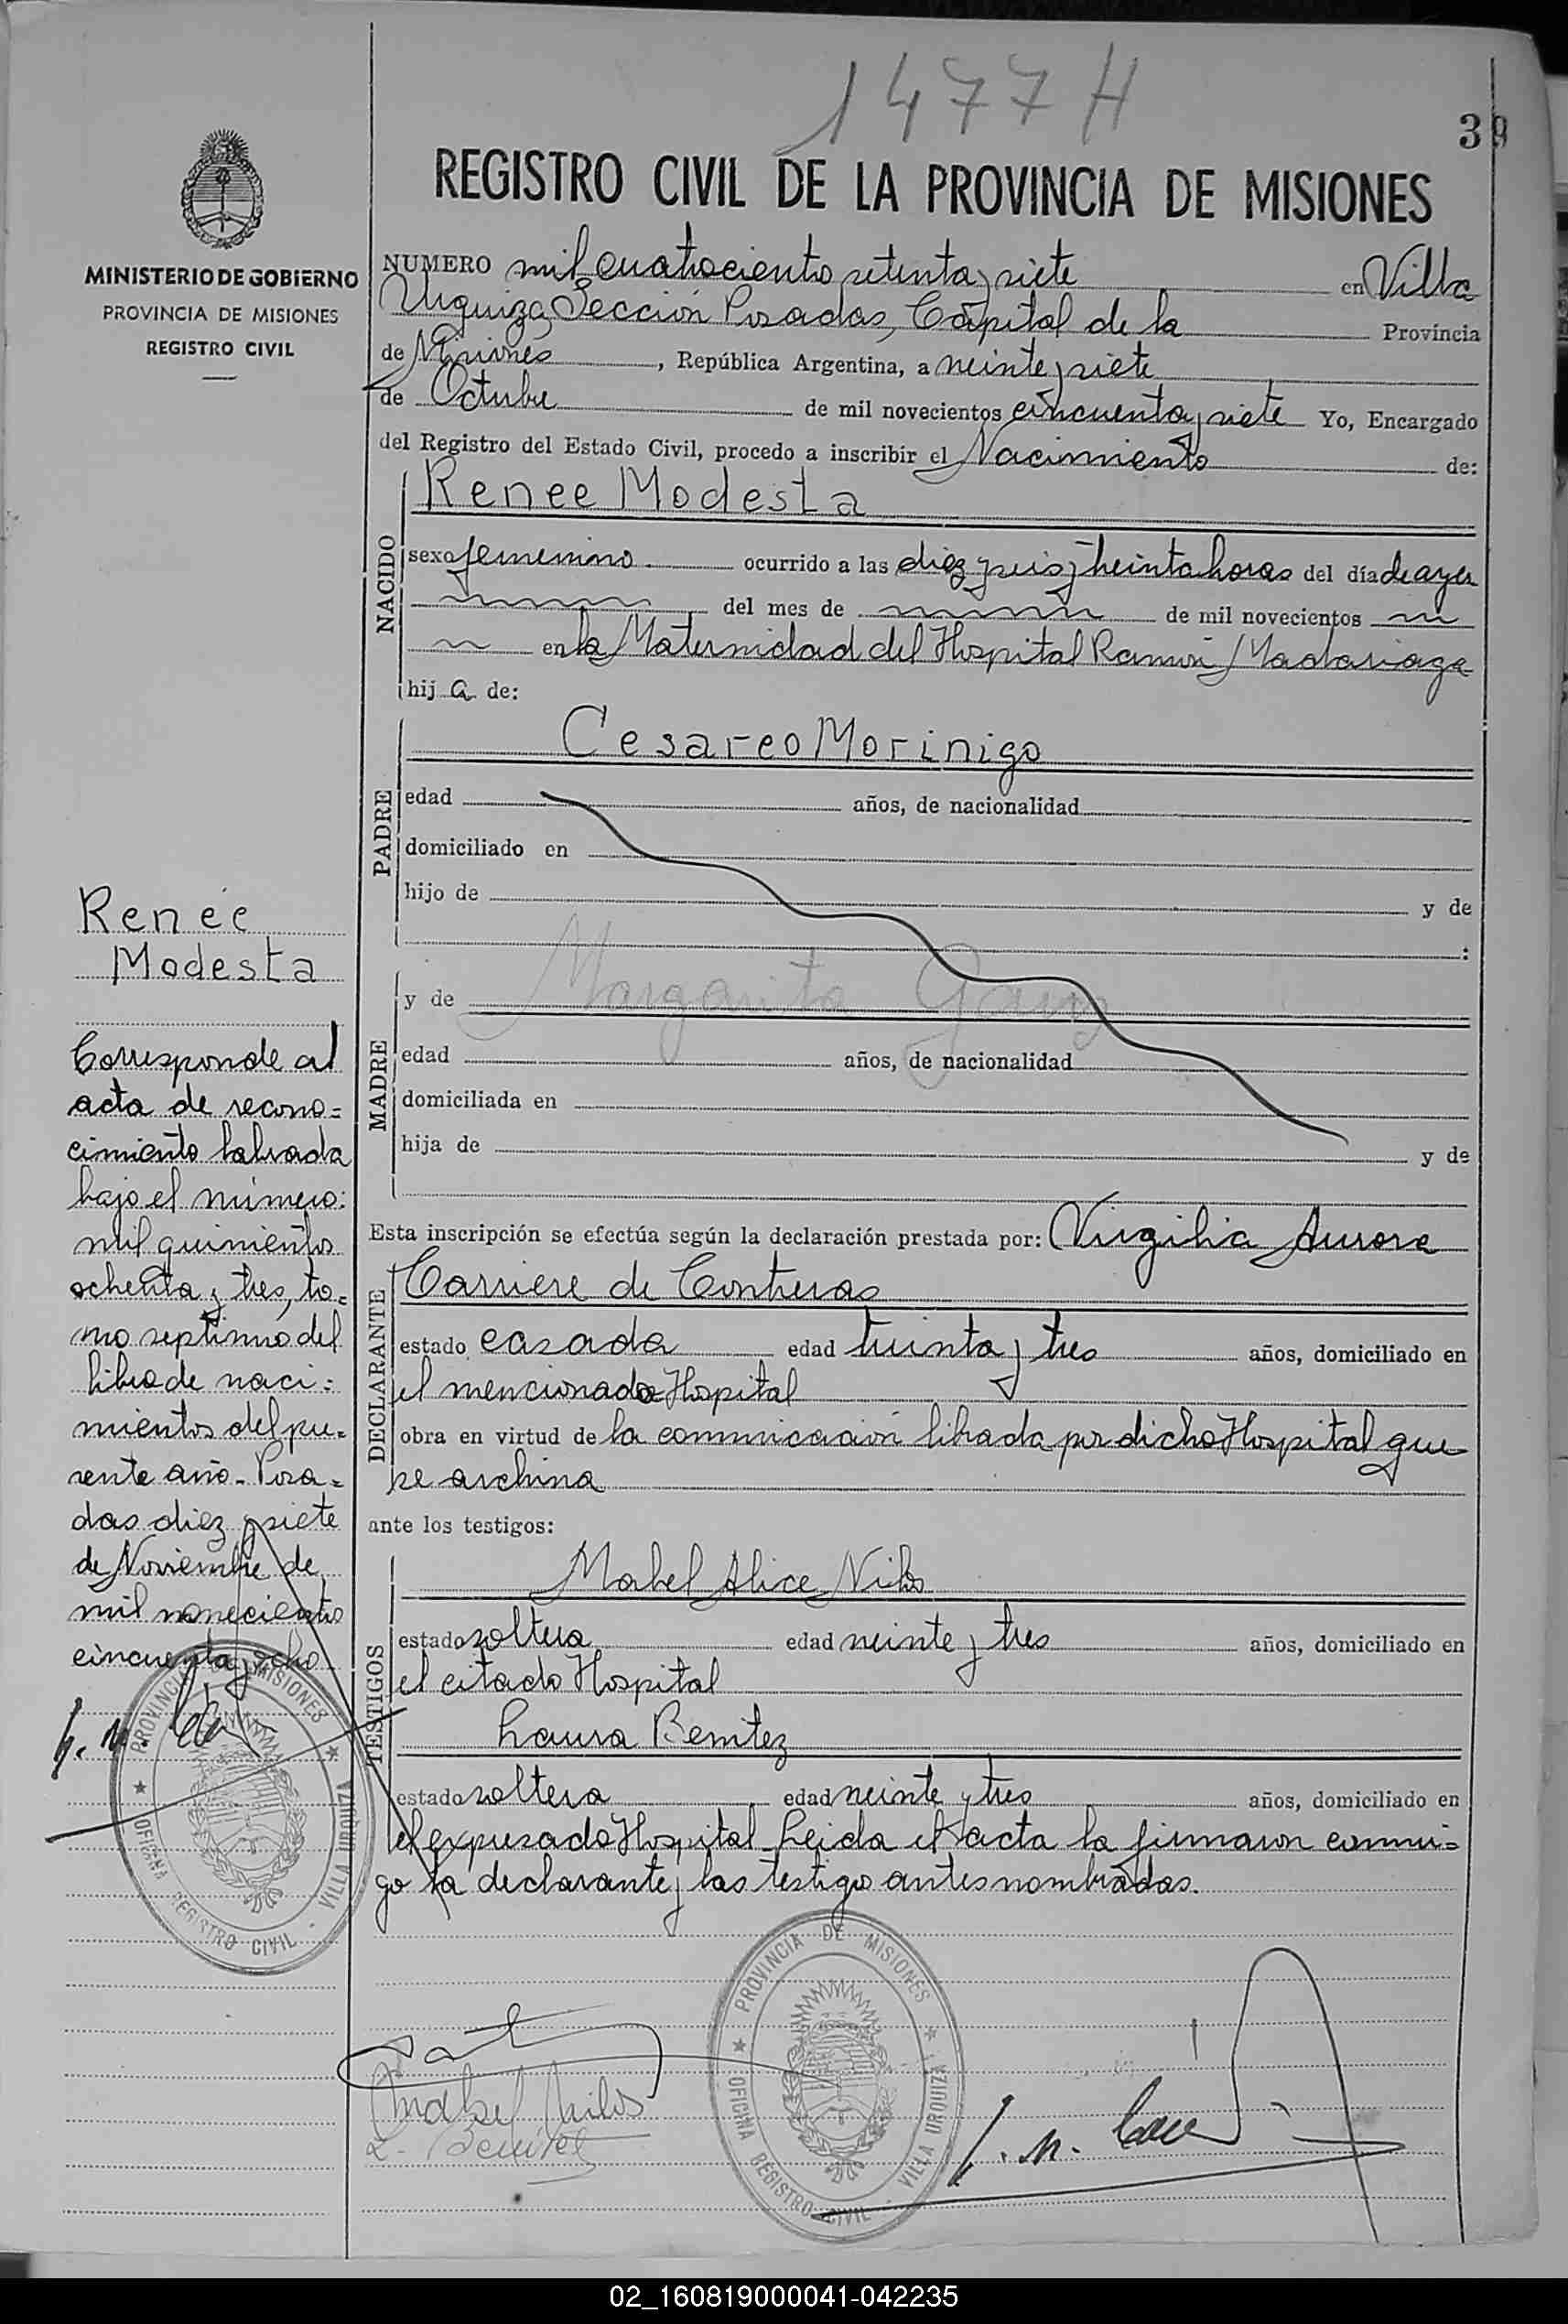 1477 H
39
REGISTRO CIVIL DE LA PROVINCIA DE MISIONES
MINISTERIO DE GOBIERNO
PROVINCIA DE MISIONES
REGISTRO CIVIL
NUMERO mil cuatrociento setenta y siete en Villa
Urquiza, Sección Posadas, Capital de la Provincia
de Misiones, República Argentina, a veinte y siete
de Octubre de mil novecientos cincuenta y siete Yo, Encargado
del Registro del Estado Civil, procedo a inscribir el Nacimiento de:
NACIDO
Renee Modesta
sexo femenino. ocurrido a las diez y seis y treinta horas del día de ayer
del mes de de mil novecientos
en la Maternidad del Hospital Ramón Madariaga
hij a de:
PADRE
Cesareo Morinigo
edad años, de nacionalidad
domiciliado en
hijo de y de
:
MADRE
y de Margarita
edad años, de nacionalidad
domiciliada en
hija de y de
Esta inscripción se efectúa según la declaración prestada por: Virgilia Aurora
DECLARANTE
Carriere de Contreras
estado casada edad treinta y tres años, domiciliado en
el mencionado Hospital
obra en virtud de la comunicación librada por dicho Hospital que
se archiva
ante los testigos:
TESTIGOS
Mabel Alice Nilos
estado soltera edad veinte y tres años, domiciliado en
el citado Hospital
Laura Benitez
estado soltera edad veinte y tres años, domiciliado en
el expresado Hospital. Leida el acta la firmaron conmi=
go la declarante y las testigo antes nombradas.
Renée
Modesta
Corresponde al
acta de recono=
cimiento labrada
bajo el número:
mil quinientos
ochenta y tres, to=
mo septimo del
libro de naci=
mientos del pre=
sente año. Posa=
das diez y siete
de Noviembre de
mil novecientos
cincuenta y ocho
PROVINCIA DE MISIONES
OFICINA REGISTRO CIVIL - VILLA URQUIZA
Mabel Nilos
L. Benitez
PROVINCIA DE MISIONES
OFICINA REGISTRO CIVIL - VILLA URQUIZA
02_160819000041-042235